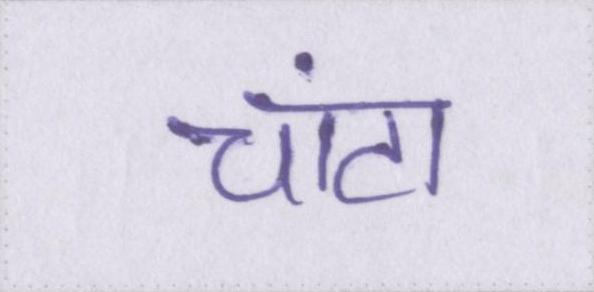 चांटा